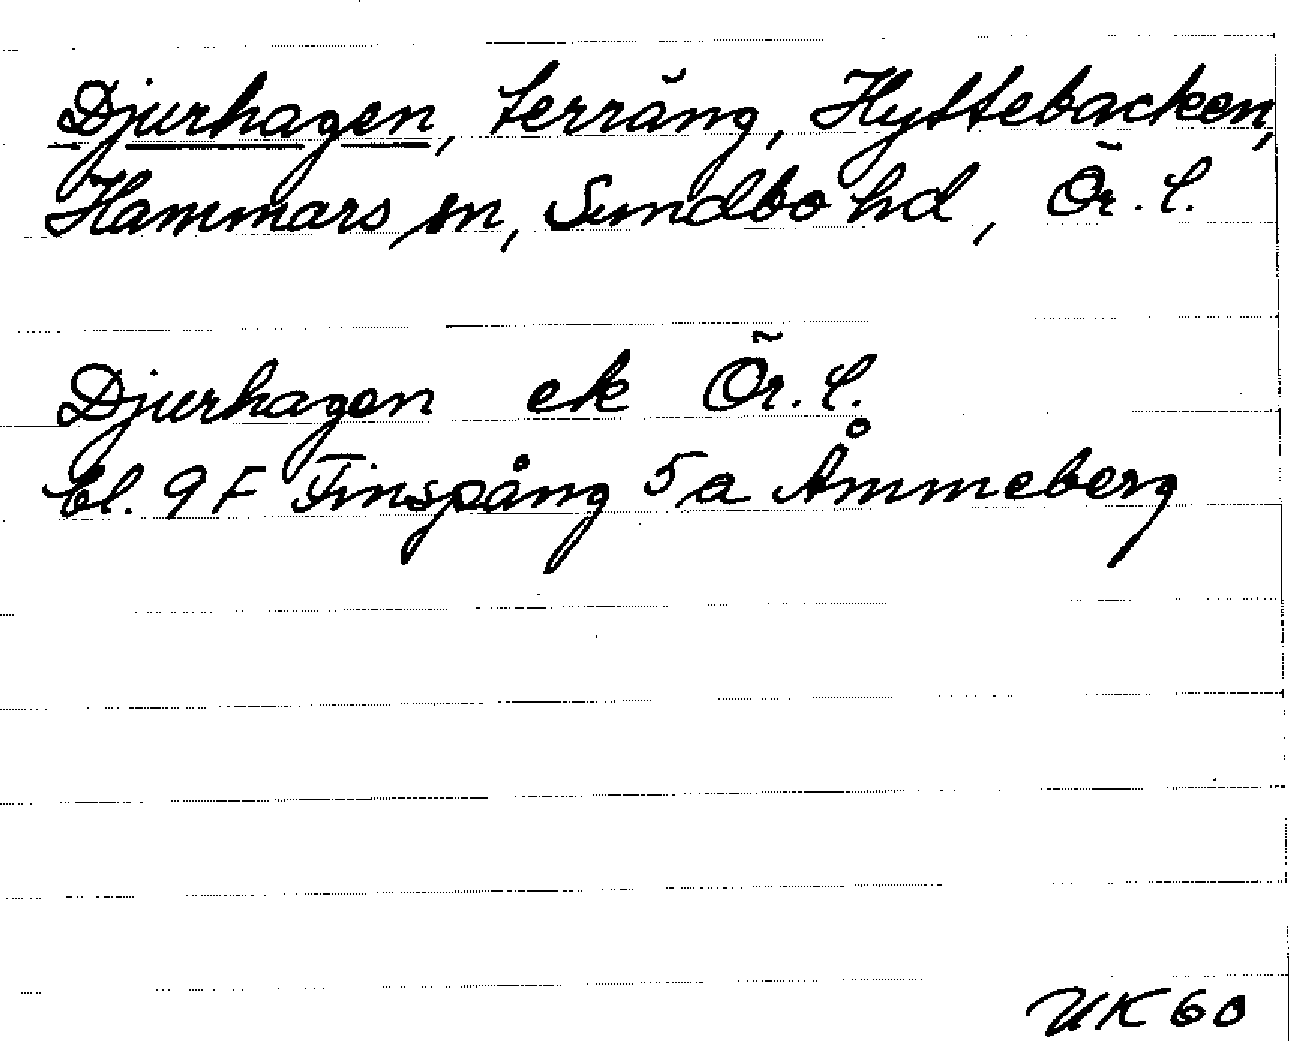 Djurhagen, terräng, Hyttebacken,
Hammars sn, Sundbo hd, Ör. l.
Djurhagen ek Ör. l.
bl. 9 F Finspång 5 a Åmmeberg
UK 60